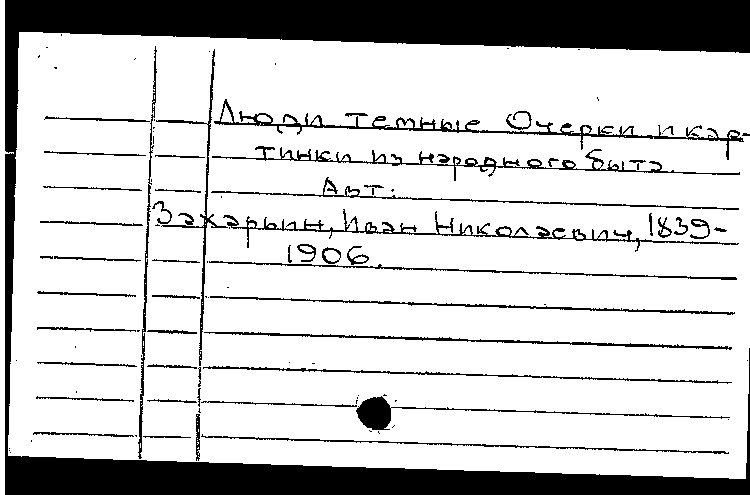 Люди темные Очерки и кар-
тинки из народного быта.
Авт:
Захарьин, Иван Николаевич, 1839-
1906.